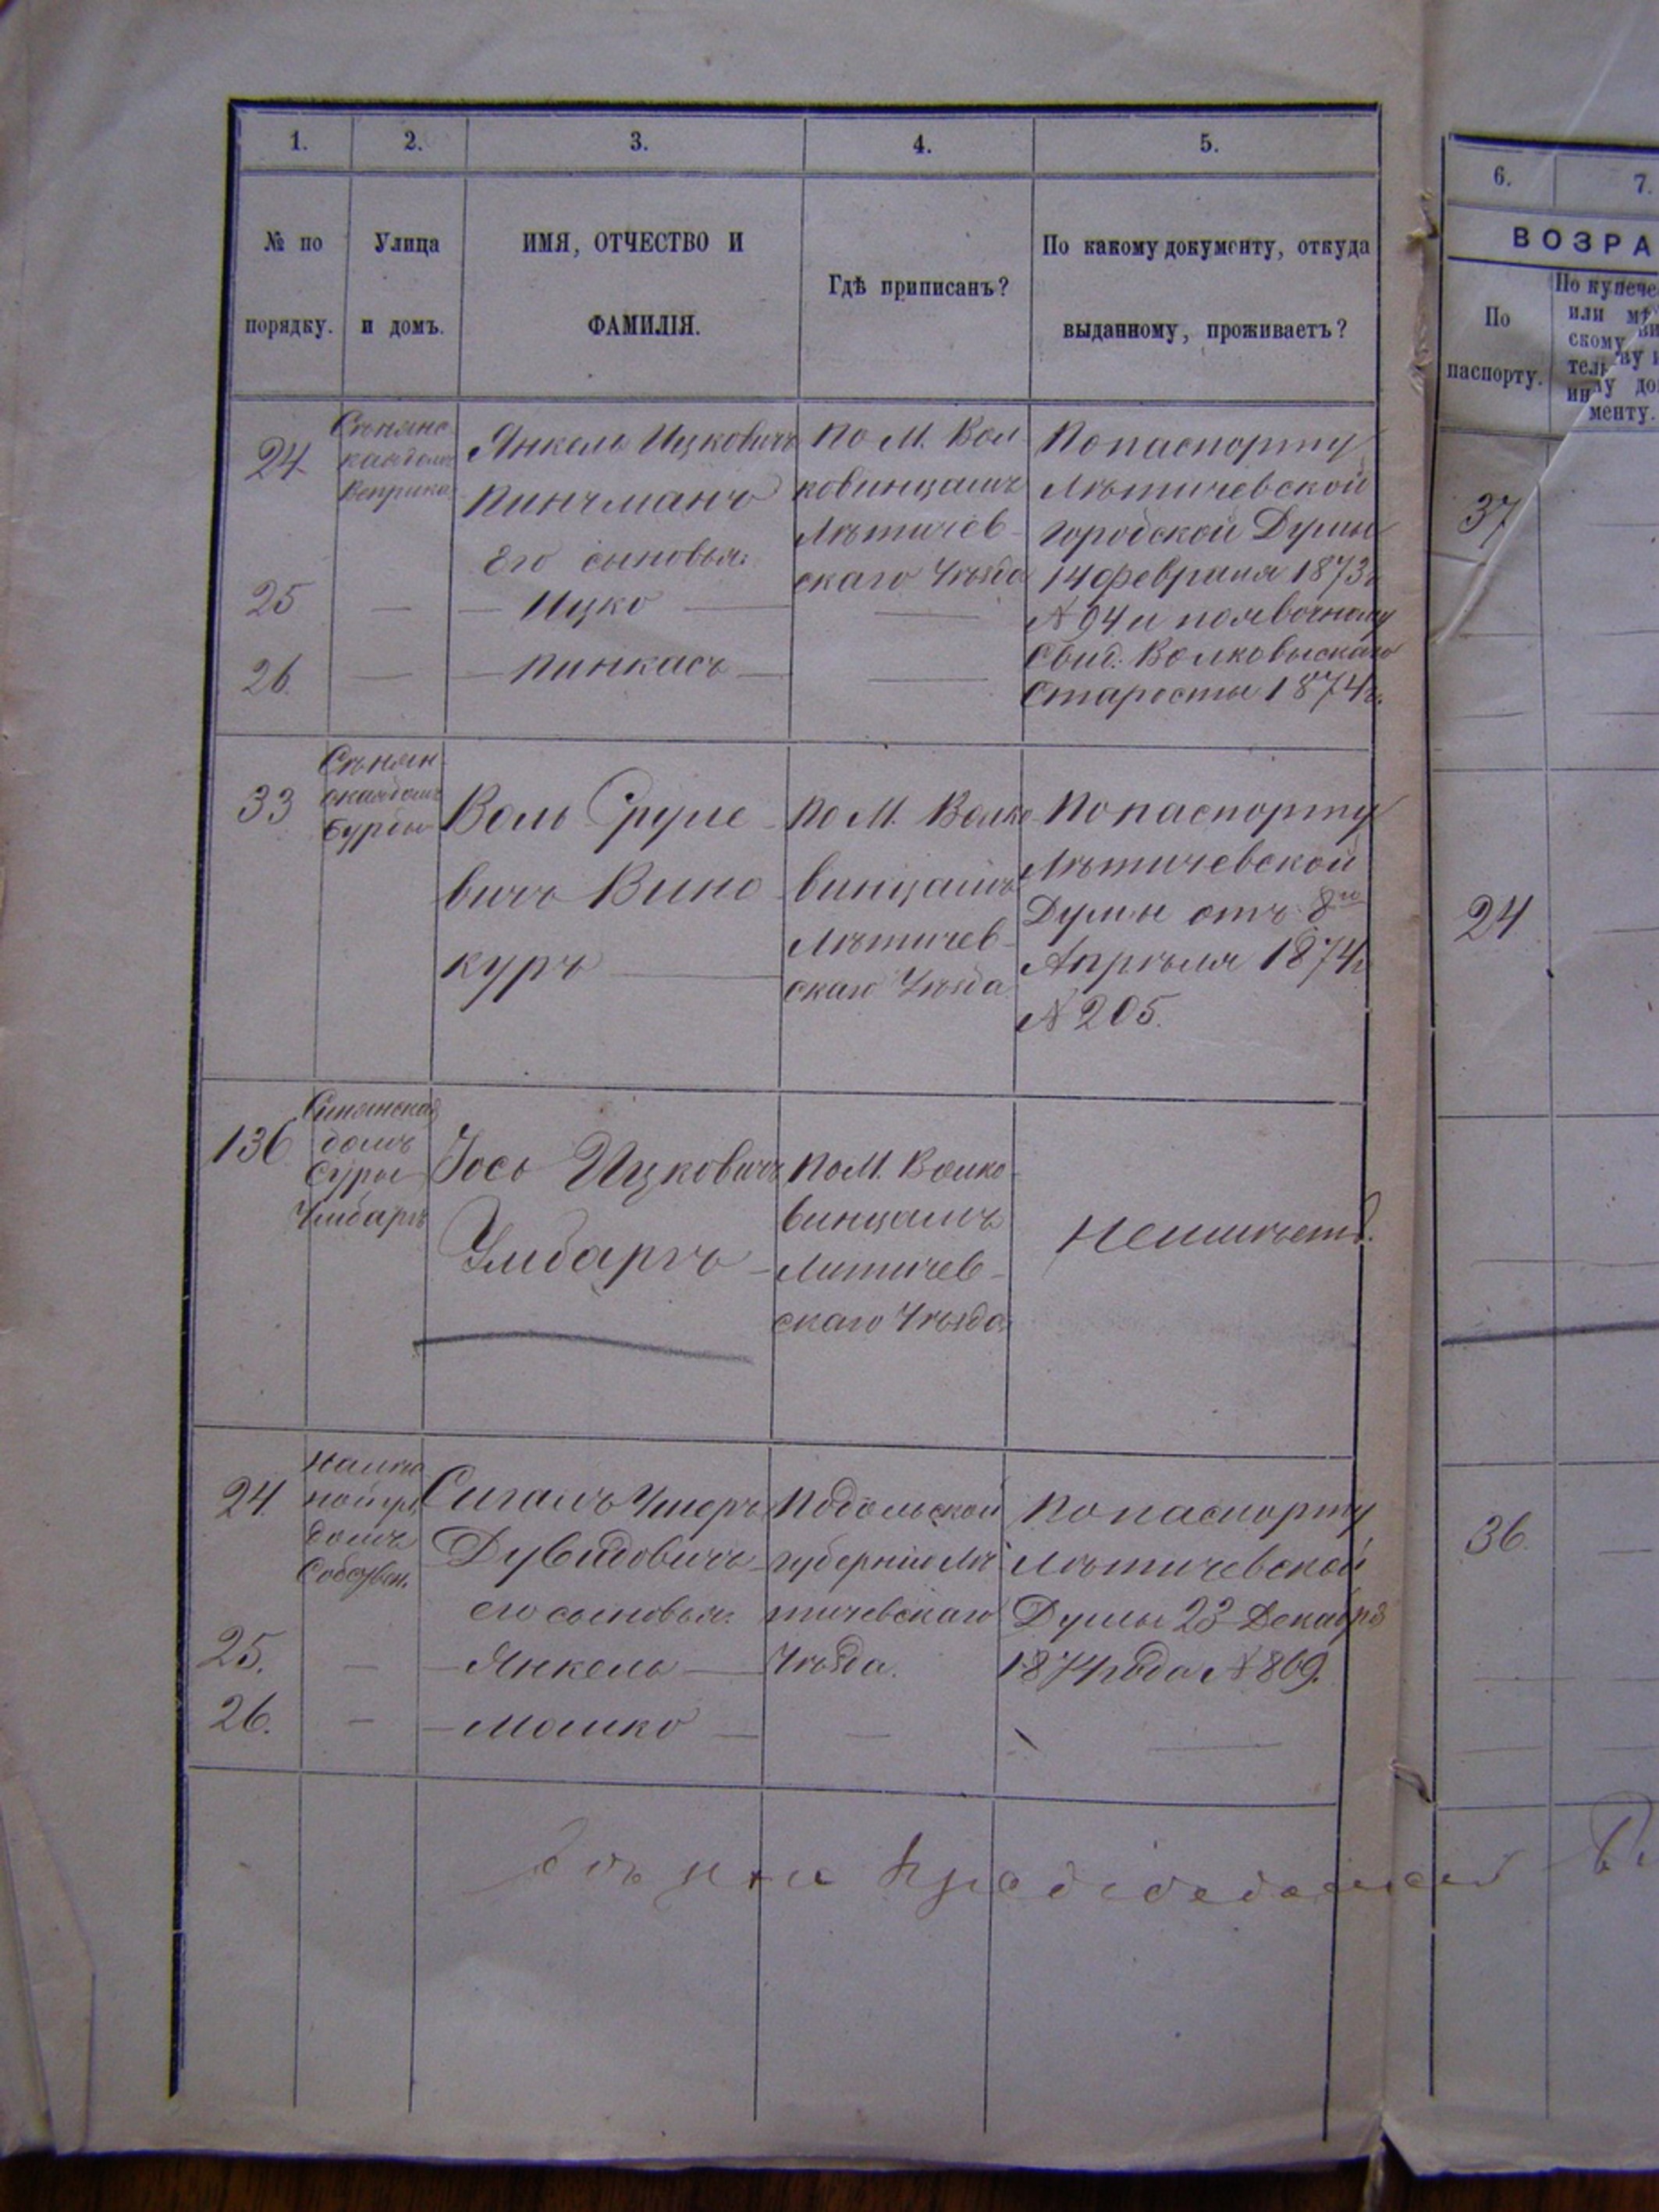 1.
2.
3.
4.
5.
№ по
порядку.
Улица
и домъ.
ИМЯ, ОТЧЕСТВО И
ФАМИЛІЯ.
Гдѣ приписанъ?
По какому документу, откуда
выданному, проживаетъ?
24
Сѣнянс
кая домъ
Веприка
Янкель Ицковичъ
Пинчманъ
Его сыновья:
По М. Вол
ковинцамъ
Лѣтичев
скаго Уѣзда
По паспорту
Лѣтичевской
городской Думы
14 февраля 1873 г.
№ 94 и по явочному
Свид. Волковыскаго
Старосты 1874 г.
25
— Ицко —
26.
— Пинкасъ —
33
Сѣнян
ская домъ
Бурды
Воль Сруле
вичъ Вино
куръ
По М. Волко
винцамъ
Лѣтичев
скаго Уѣзда
По паспорту
Лѣтичевской
Думы отъ 8го
Апрѣля 1874 г
№ 205.
136
Синянская
домъ
Суры
Улибаргъ
Іось Ицковичъ
Улибаргъ
По М. Волко
винцамъ
Литичев
скаго Уѣзда
Неимѣетъ.
24.
домъ
Собствен.
Сигалъ Ушеръ
Дувидовичъ
его сыновья:
Подольской
губерніи Лѣ
тичевскаго
Уѣзда.
По паспорту
Лѣтичевской
Думы 23 Декабря
1874 года № 869.
25.
— Янкель —
26.
— Мошко —
6.
7.
ВОЗРА
По
паспорту.
По купече
или мѣ
скому
менту.
37
24
36.